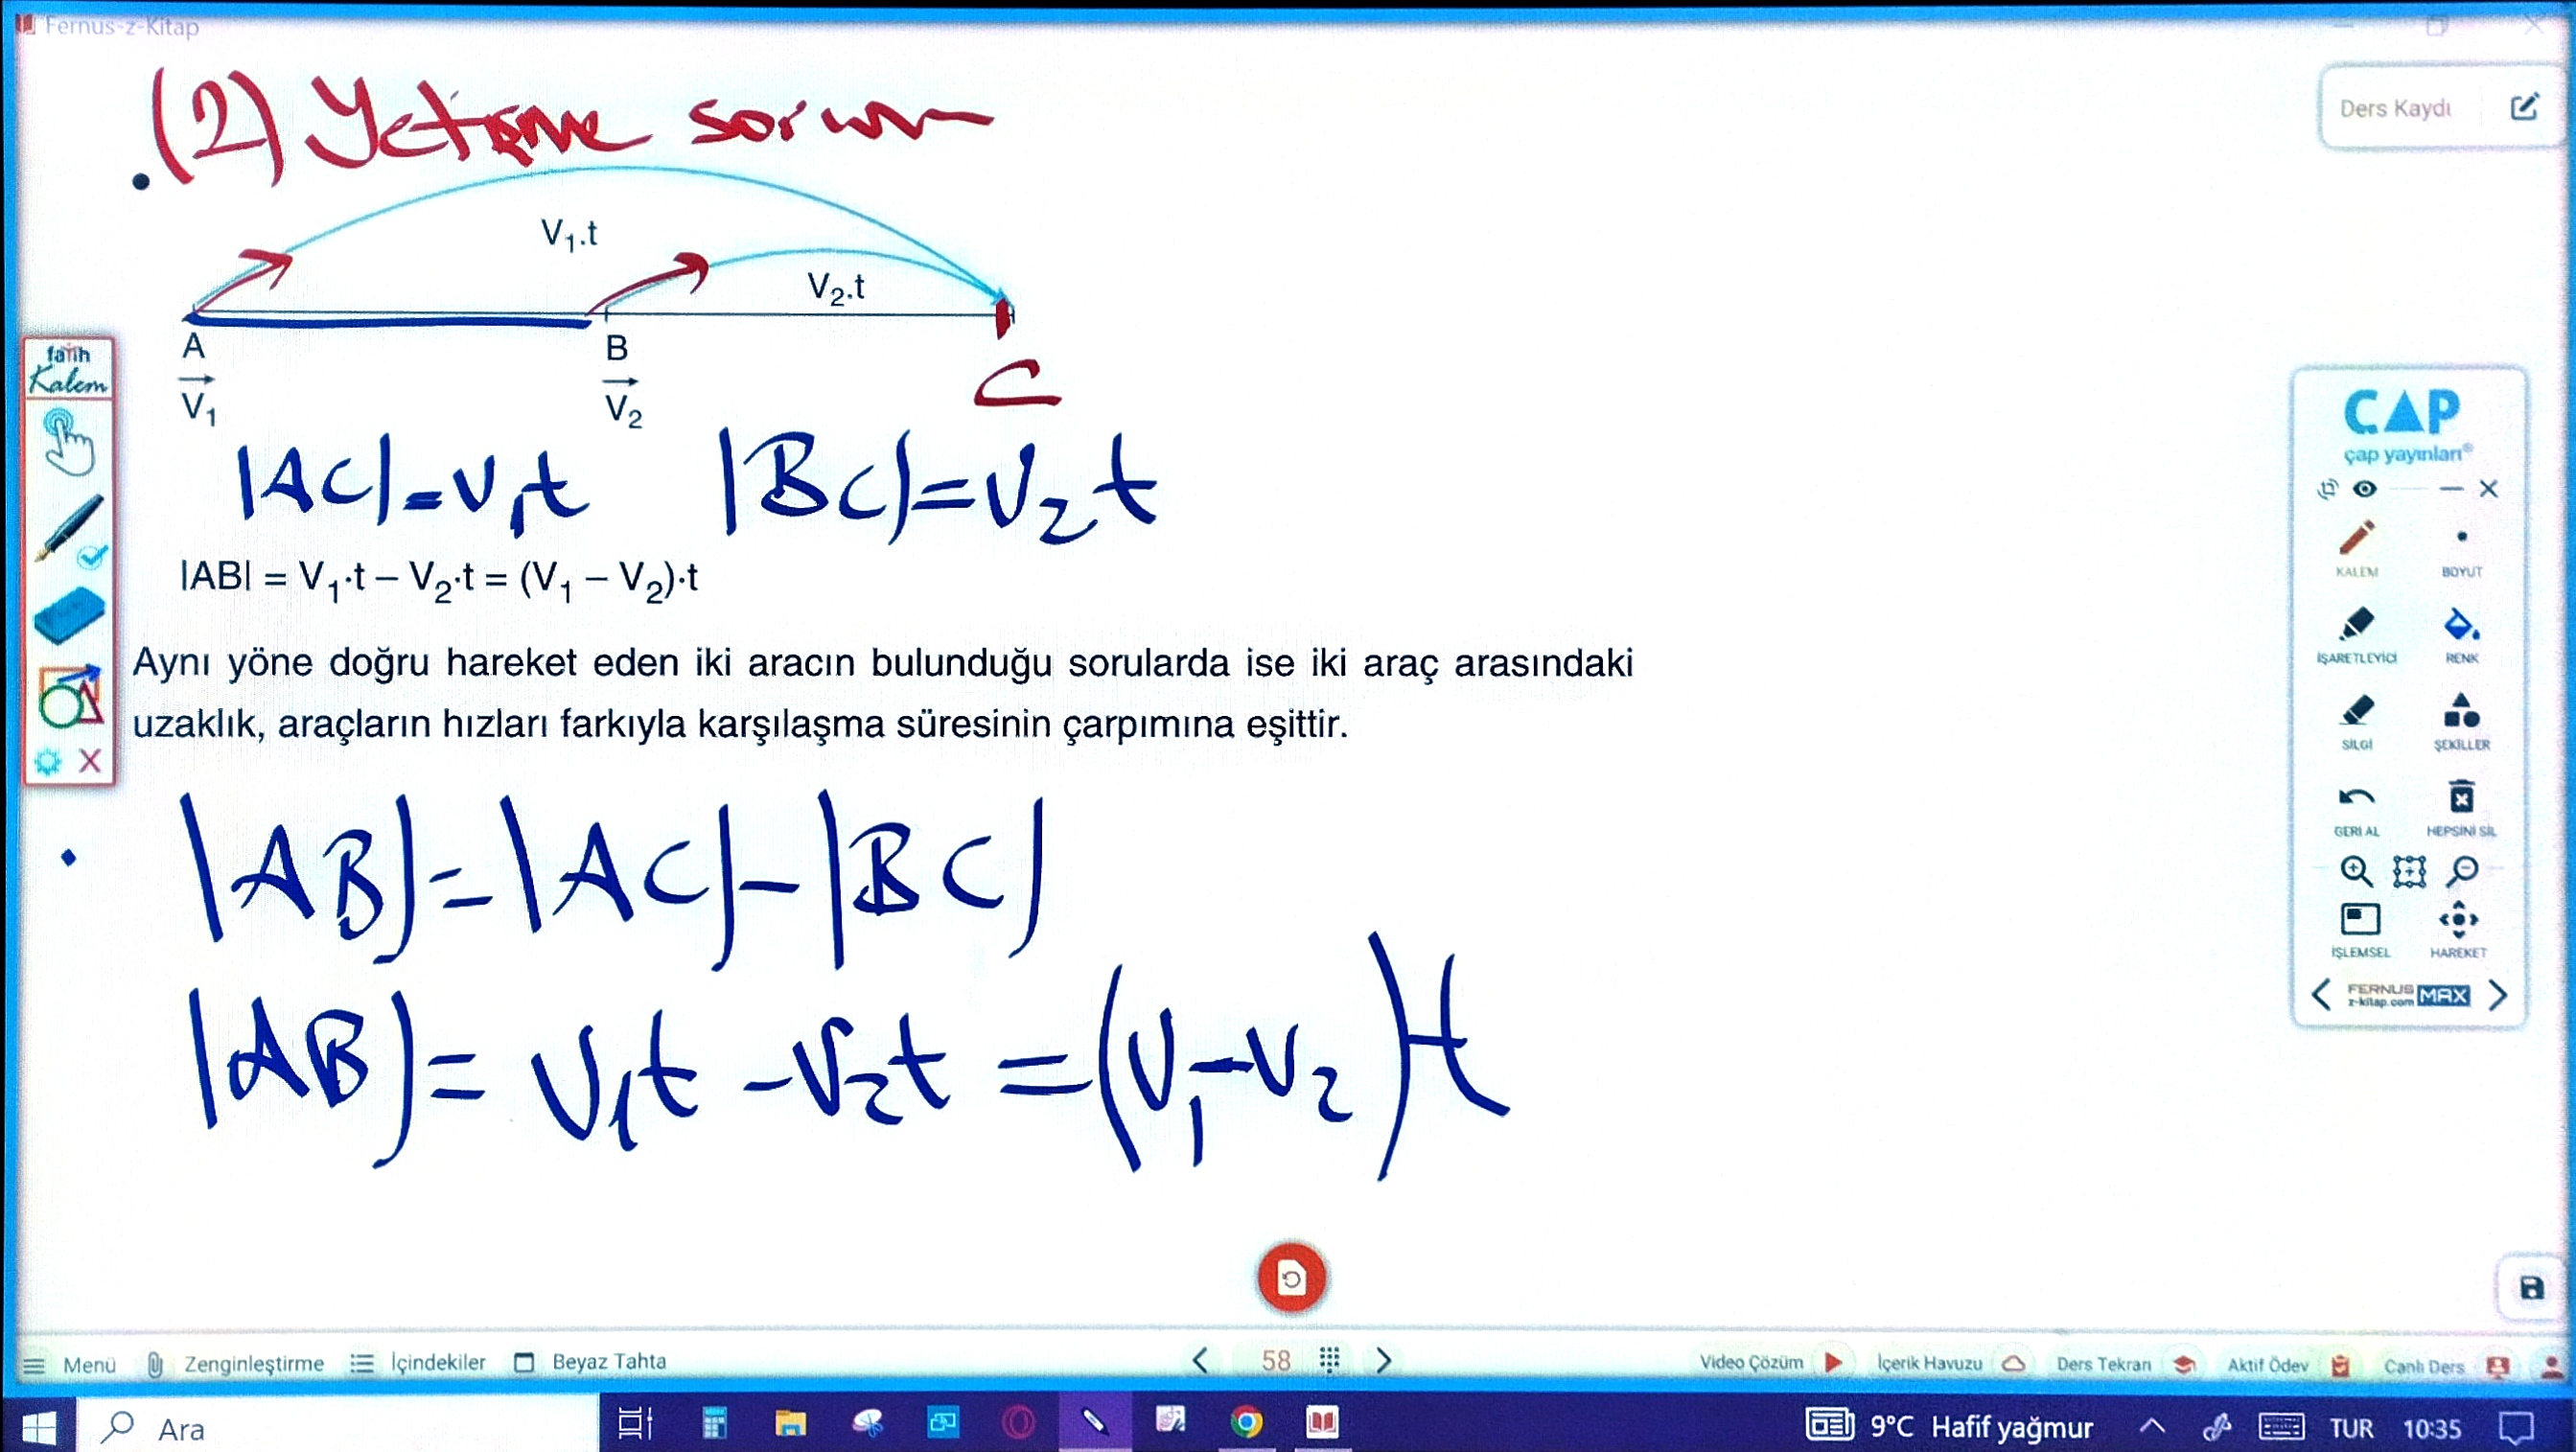 Fernus-z-Kitap
(2) Yetişme sorunu
Ders Kaydı
V₁.t
V₂.t
A
B
C
V₁
V₂
|AC|=V₁t |BC|=V₂t
|AB| = V₁·t – V₂·t = (V₁ – V₂)·t
Aynı yöne doğru hareket eden iki aracın bulunduğu sorularda ise iki araç arasındaki
uzaklık, araçların hızları farkıyla karşılaşma süresinin çarpımına eşittir.
|AB|=|AC|-|BC|
|AB|= V₁t -V₂t =(V₁-V₂)t
fatih
Kalem
CAP
çap yayınları®
KALEM BOYUT
İŞARETLEYİCİ RENK
SİLGİ ŞEKİLLER
GERİ AL HEPSİNİ SİL
İŞLEMSEL HAREKET
FERNUS
z-kitap.com MAX
Menü Zenginleştirme İçindekiler Beyaz Tahta 58 Video Çözüm İçerik Havuzu Ders Tekrarı Aktif Ödev Canlı Ders
Ara 9°C Hafif yağmur TUR 10:35